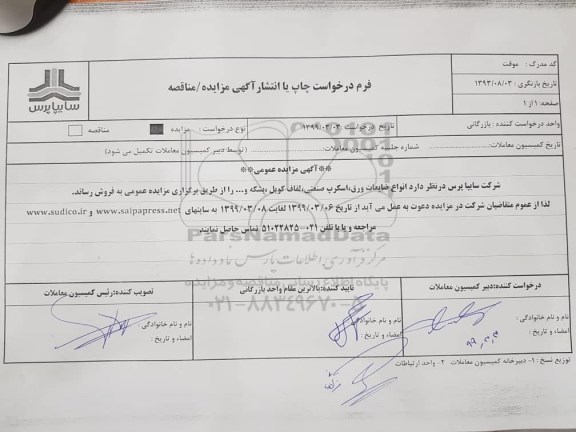 کد مدرک : موقت
تاریخ بازنگری : ۱۳۹۳/۰۸/۰۳
صفحه: ۱ از ۱
فرم درخواست چاپ یا انتشار آگهی مزایده/مناقصه
سایپا پرس
واحد درخواست کننده : بازرگانی
تاریخ درخواست: ۱۳۹۹/۰۳/۰۳
نوع درخواست : مزایده مناقصه
تاریخ کمیسیون معاملات: شماره جلسه کمیسیون معاملات: (توسط دبیر کمیسیون معاملات تکمیل می شود)
**آگهی مزایده عمومی**
شرکت سایپا پرس درنظر دارد انواع ضایعات ورق،اسکرپ صنعتی،لفاف کویل ،بشکه و... را از طریق برگزاری مزایده عمومی به فروش رساند.
لذا از عموم متقاضیان شرکت در مزایده دعوت به عمل می آید از تاریخ ۱۳۹۹/۰۳/۰۶ لغایت ۱۳۹۹/۰۳/۰۸ به سایتهای www.saipapress.net و www.sudico.ir
مراجعه و یا با تلفن ۰۲۱-۵۱۰۲۲۸۲۵ تماس حاصل نمایند.
ParsNamadData
مرکز فرآوری اطلاعات پارس نماد داده ها
پایگاه اطلاع رسانی مناقصه و مزایده
۰۲۱-۸۸۳۴۹۶۷۰
درخواست کننده:دبیر کمیسیون معاملات
تایید کننده:بالاترین مقام واحد بازرگانی
تصویب کننده:رئیس کمیسیون معاملات
نام و نام خانوادگی :
امضاء و تاریخ :
نام و نام خانوادگی :
امضاء و تاریخ :
نام و نام خانوادگی :
امضاء و تاریخ :
توزیع نسخ : ۱- دبیرخانه کمیسیون معاملات ۲- واحد ارتباطات